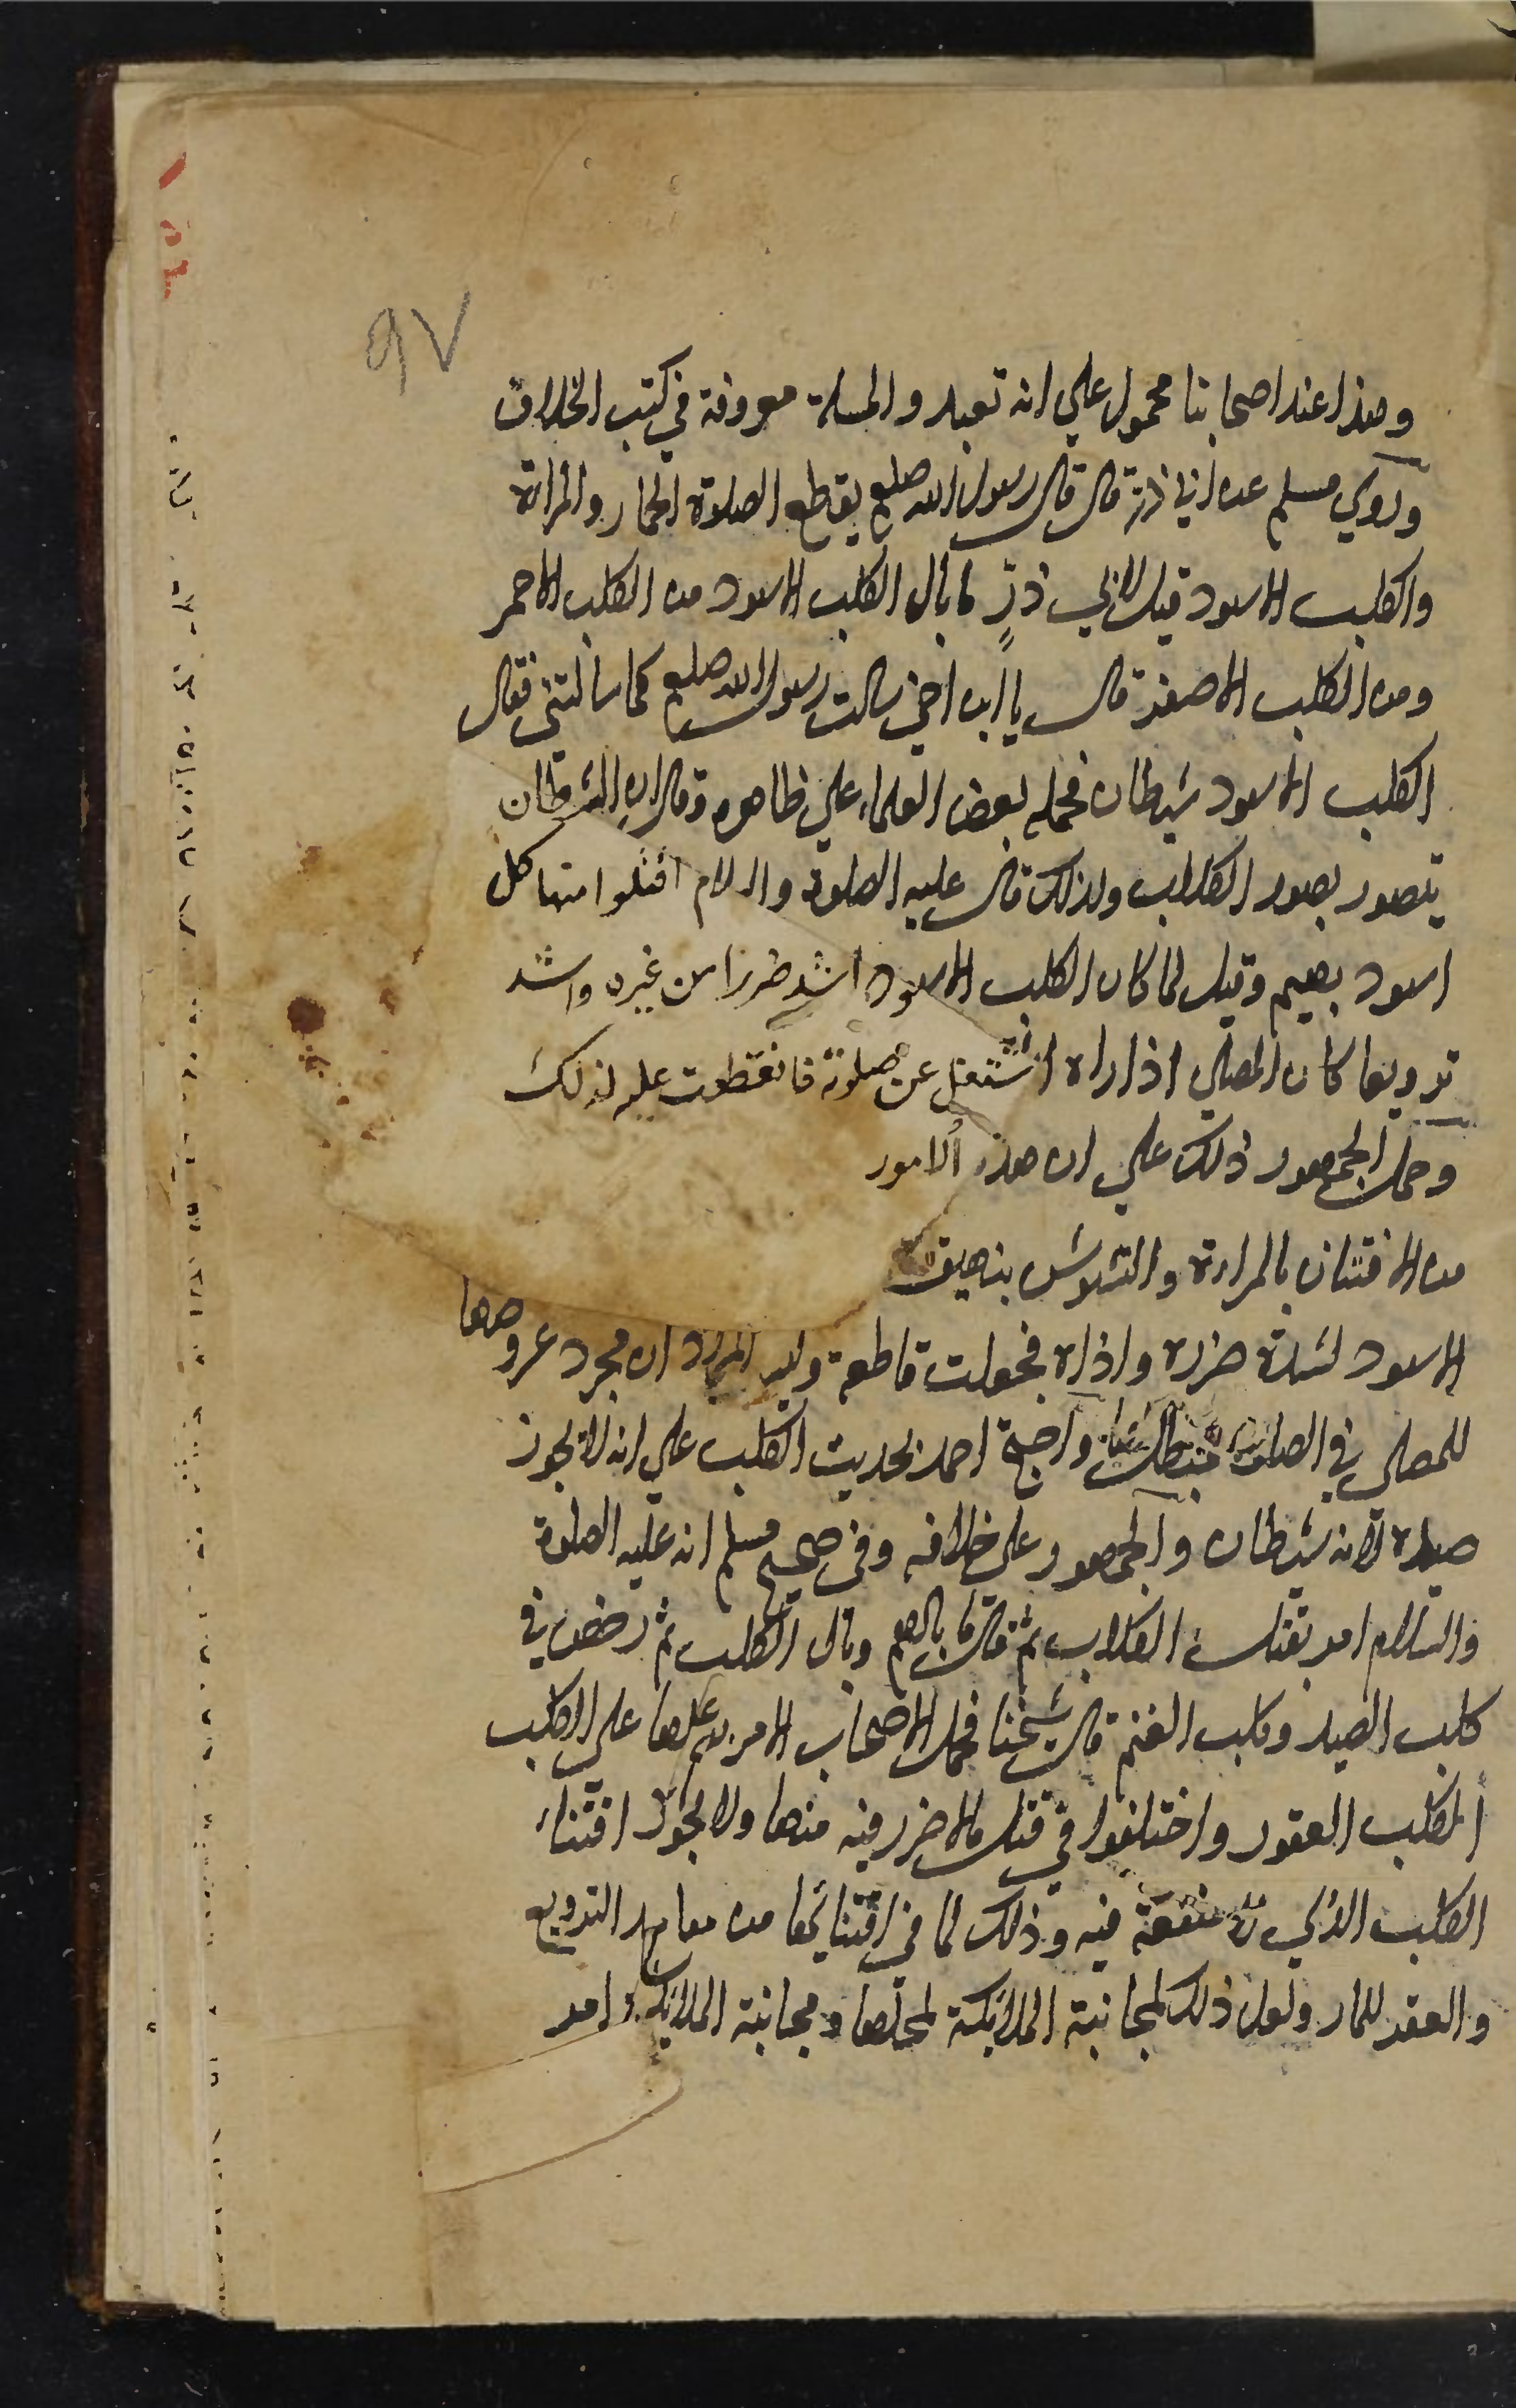 ٩٧
وهذا عند اصحابنا محمول علي انه تعبد والمسلة معروفة في كتب الخلاف
وروي مسلم عن ابي ذر قال قال رسول الله صلعم يقطع الصلوة الحمار والمراة
والكلب الاسود قيل لابي ذرٍ ما بال الكلب الاسود من الكلب الاحمر
ومن الكلب الاصفر قال يا ابن اخي سالت رسول الله صلعم كما سالتني فقال
الكلب الاسود شيطان فحمله بعض العلماء علي ظاهره وقال ان الشيطان
يتصور بصور الكلاب ولذلك قال عليه الصلوة والسلام اقتلوا منها كل
اسود بهيم وقيل لما كان الكلب الاسود اشد ضررا من غيره واشد
ترويعا كان المصلي اذا راه اشتغل عن صلوته فانقطعت عليه لذلك
وحمل الجمهور ذلك علي ان هذه الامور
من الافتتان بالمراة والتشويش بنهيق
الاسود لشدة ضرره واذاه فجعلت قاطعة وليس المراد ان مجرد عروضها
للمصلي في الصلوة مبطل واحتج احمد بحديث الكلب علي انه لا يجوز
صيده لانه شيطان والجمهور علي خلافه وفي صحيح مسلم انه عليه الصلوة
والسلام امر بقتل الكلاب ثم قال ما بالهم وبال الكلاب ثم رخص في
كلب الصيد وكلب الغنم قال شيخنا فحمل الاصحاب الامر بقتلها علي الكلب
الكلب العقور واختلفوا في قتل ما لا ضرر فيه منها ولا يجوز اقتناء
الكلب الذي لا منفعة فيه وذلك لما في اقتنائها من مفاسد الترويع
والعقر للمار ولعل ذلك لمجانبة الملائكة لمحلها ومجانبة الملائكة امر